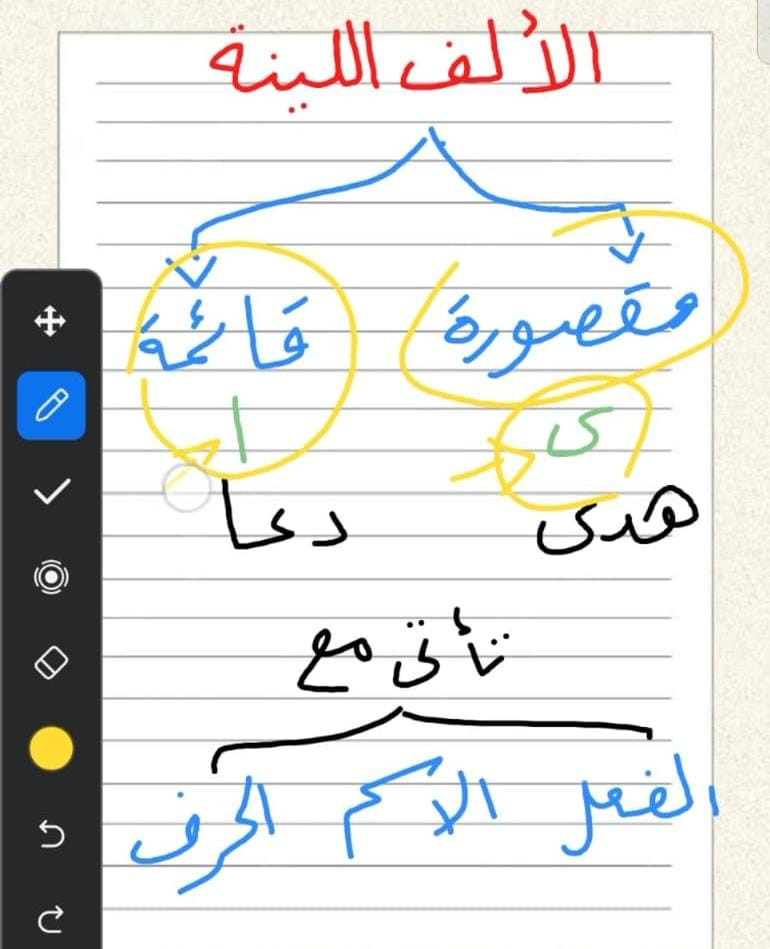 الألف اللينة
مقصورة قائمة
ى ا
هدى دعا
تأتى مع
الفعل الاسم الحرف